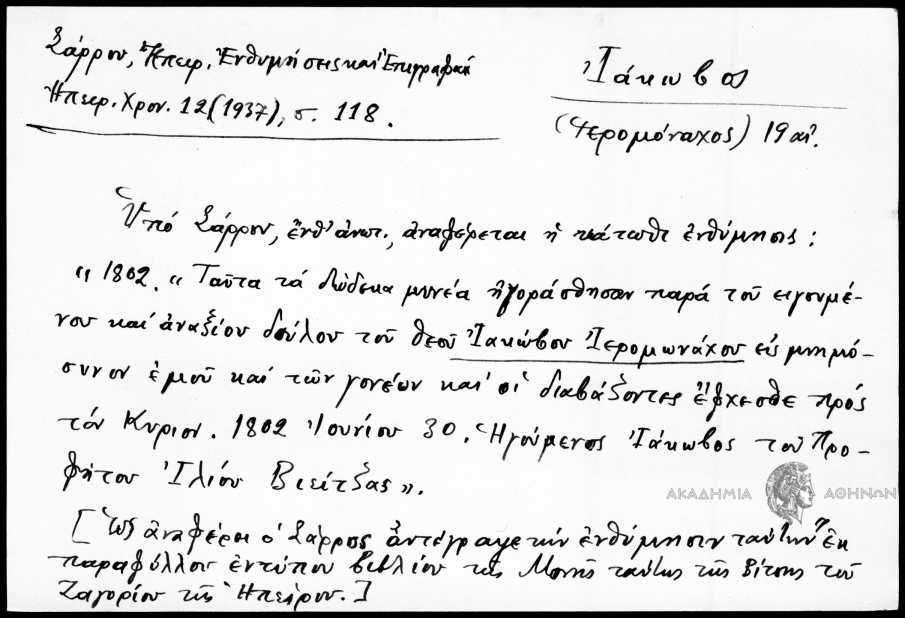 Σάρρου, Ἠπειρ. Ἐνθυμήσεις καί Ἐπιγραφαί
Ἠπειρ. Χρον. 12 (1937), σ. 118.
Ἰάκωβος
(Ἱερομόναχος) 19 αἰ.
Ὑπό Σάρρου, ἔνθ' ἀνωτ., ἀναφέρεται ἡ κάτωθι ἐνθύμησις:
„ 1802. „ Ταῦτα τά δώδεκα μηνέα ἠγοράσθησαν παρά τοῦ ειγουμέ-
νου καί ἀναξίου δούλου τοῦ θεοῦ Ἰακώβου Ἱερομωνάχου εἰς μνημό-
συνον ἐμοῦ καί τῶν γονέων καί οἱ διαβάζοντες ἔφχεσθε πρός
τόν Κυριον. 1802 Ἰουνίου 30. Ἡγούμενος Ἰάκωβος τοῦ Προ-
φήτου Ἰλιού Βιείτζας".
[Ὡς ἀναφέρει ὁ Σάρρος ἀντέγραψε τήν ἐνθύμησιν ταύτην ἐκ
παραφύλλου ἐντύπου βιβλίου τῆς Μονῆς ταύτης τῆς Βίτσης τοῦ
Ζαγορίου τῆς Ἠπείρου.]
ΑΚΑΔΗΜΙΑ ΑΘΗΝΩΝ